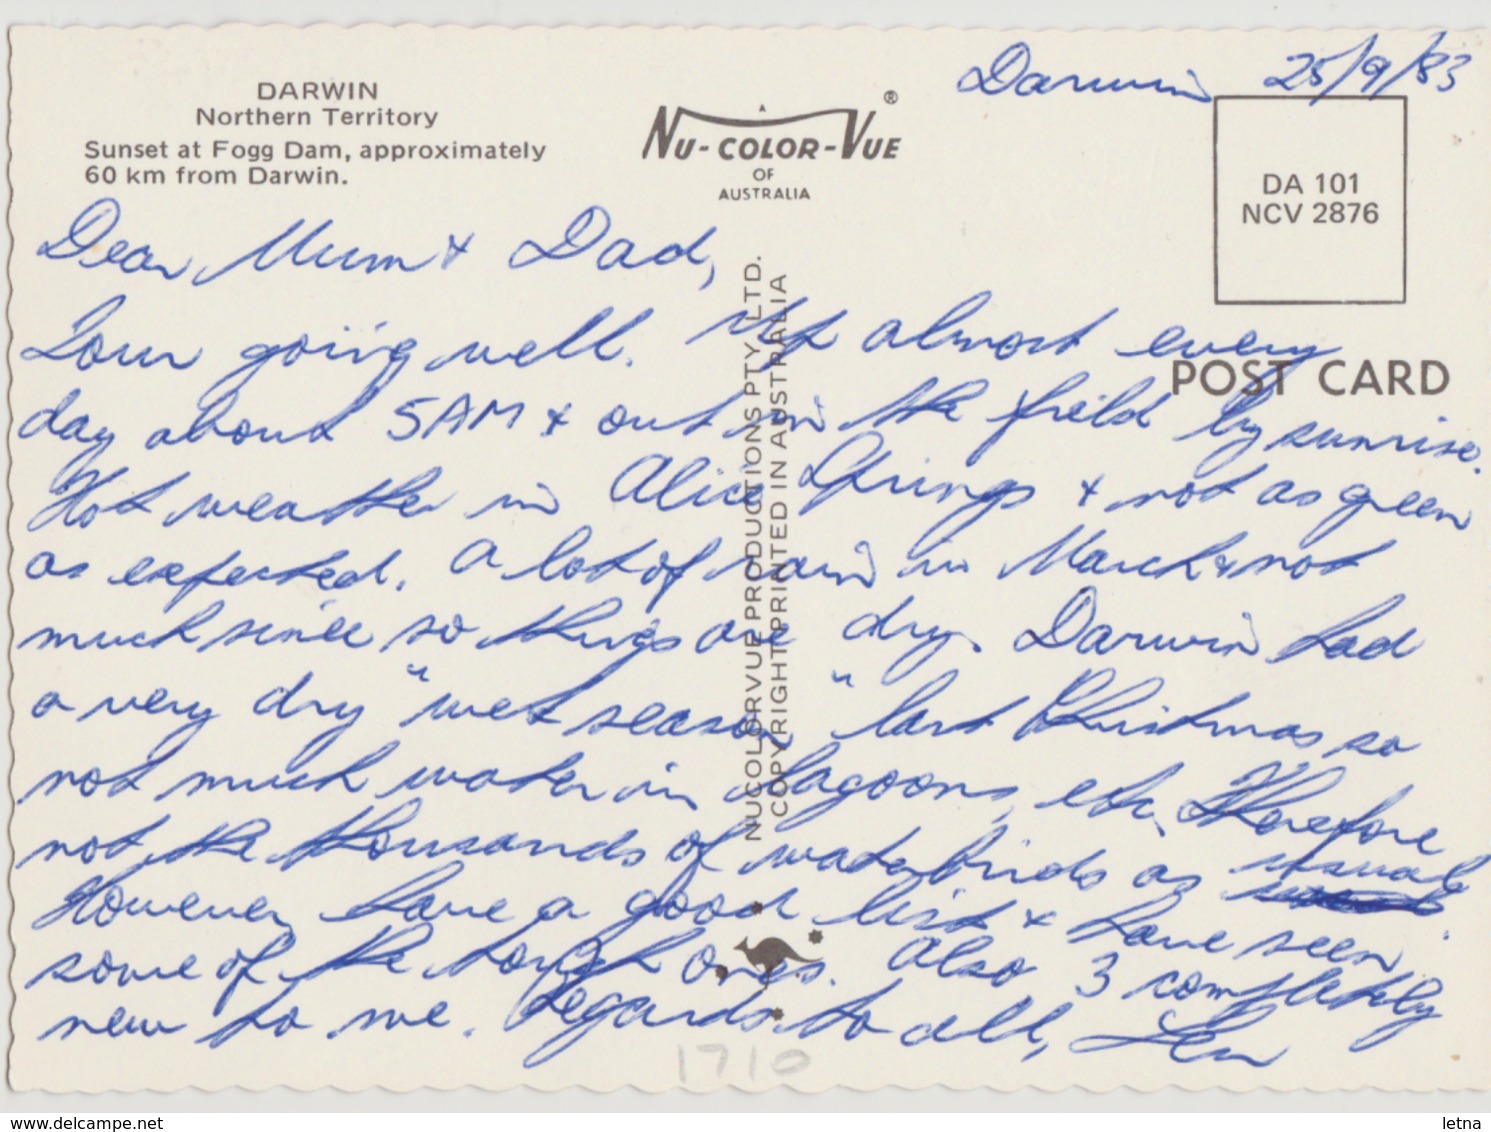 Darwin 25/9/83
DARWIN
Northern Territory
Sunset at Fogg Dam, approximately
60 km from Darwin.
A
NU-COLOR-VUE ®
OF
AUSTRALIA
DA 101
NCV 2876
POST CARD
NUCOLORVUE PRODUCTIONS PTY. LTD.
COPYRIGHT PRINTED IN AUSTRALIA
Dear Mum & Dad,
Tour going well. Up almost every
day about 5AM & out in the field by sunrise.
Hot weather in Alice Springs & not as green
as expected. A lot of rain in March & not
much since so things are dry. Darwin had
a very dry "wet season" last Christmas so
not much water in lagoons, etc. Therefore
not the thousands of waterbirds as usual.
However have a good list & have seen
some of the tough ones. Also 3 completely
new to me. Regards to all, Len
1710
delcampe.net
letna